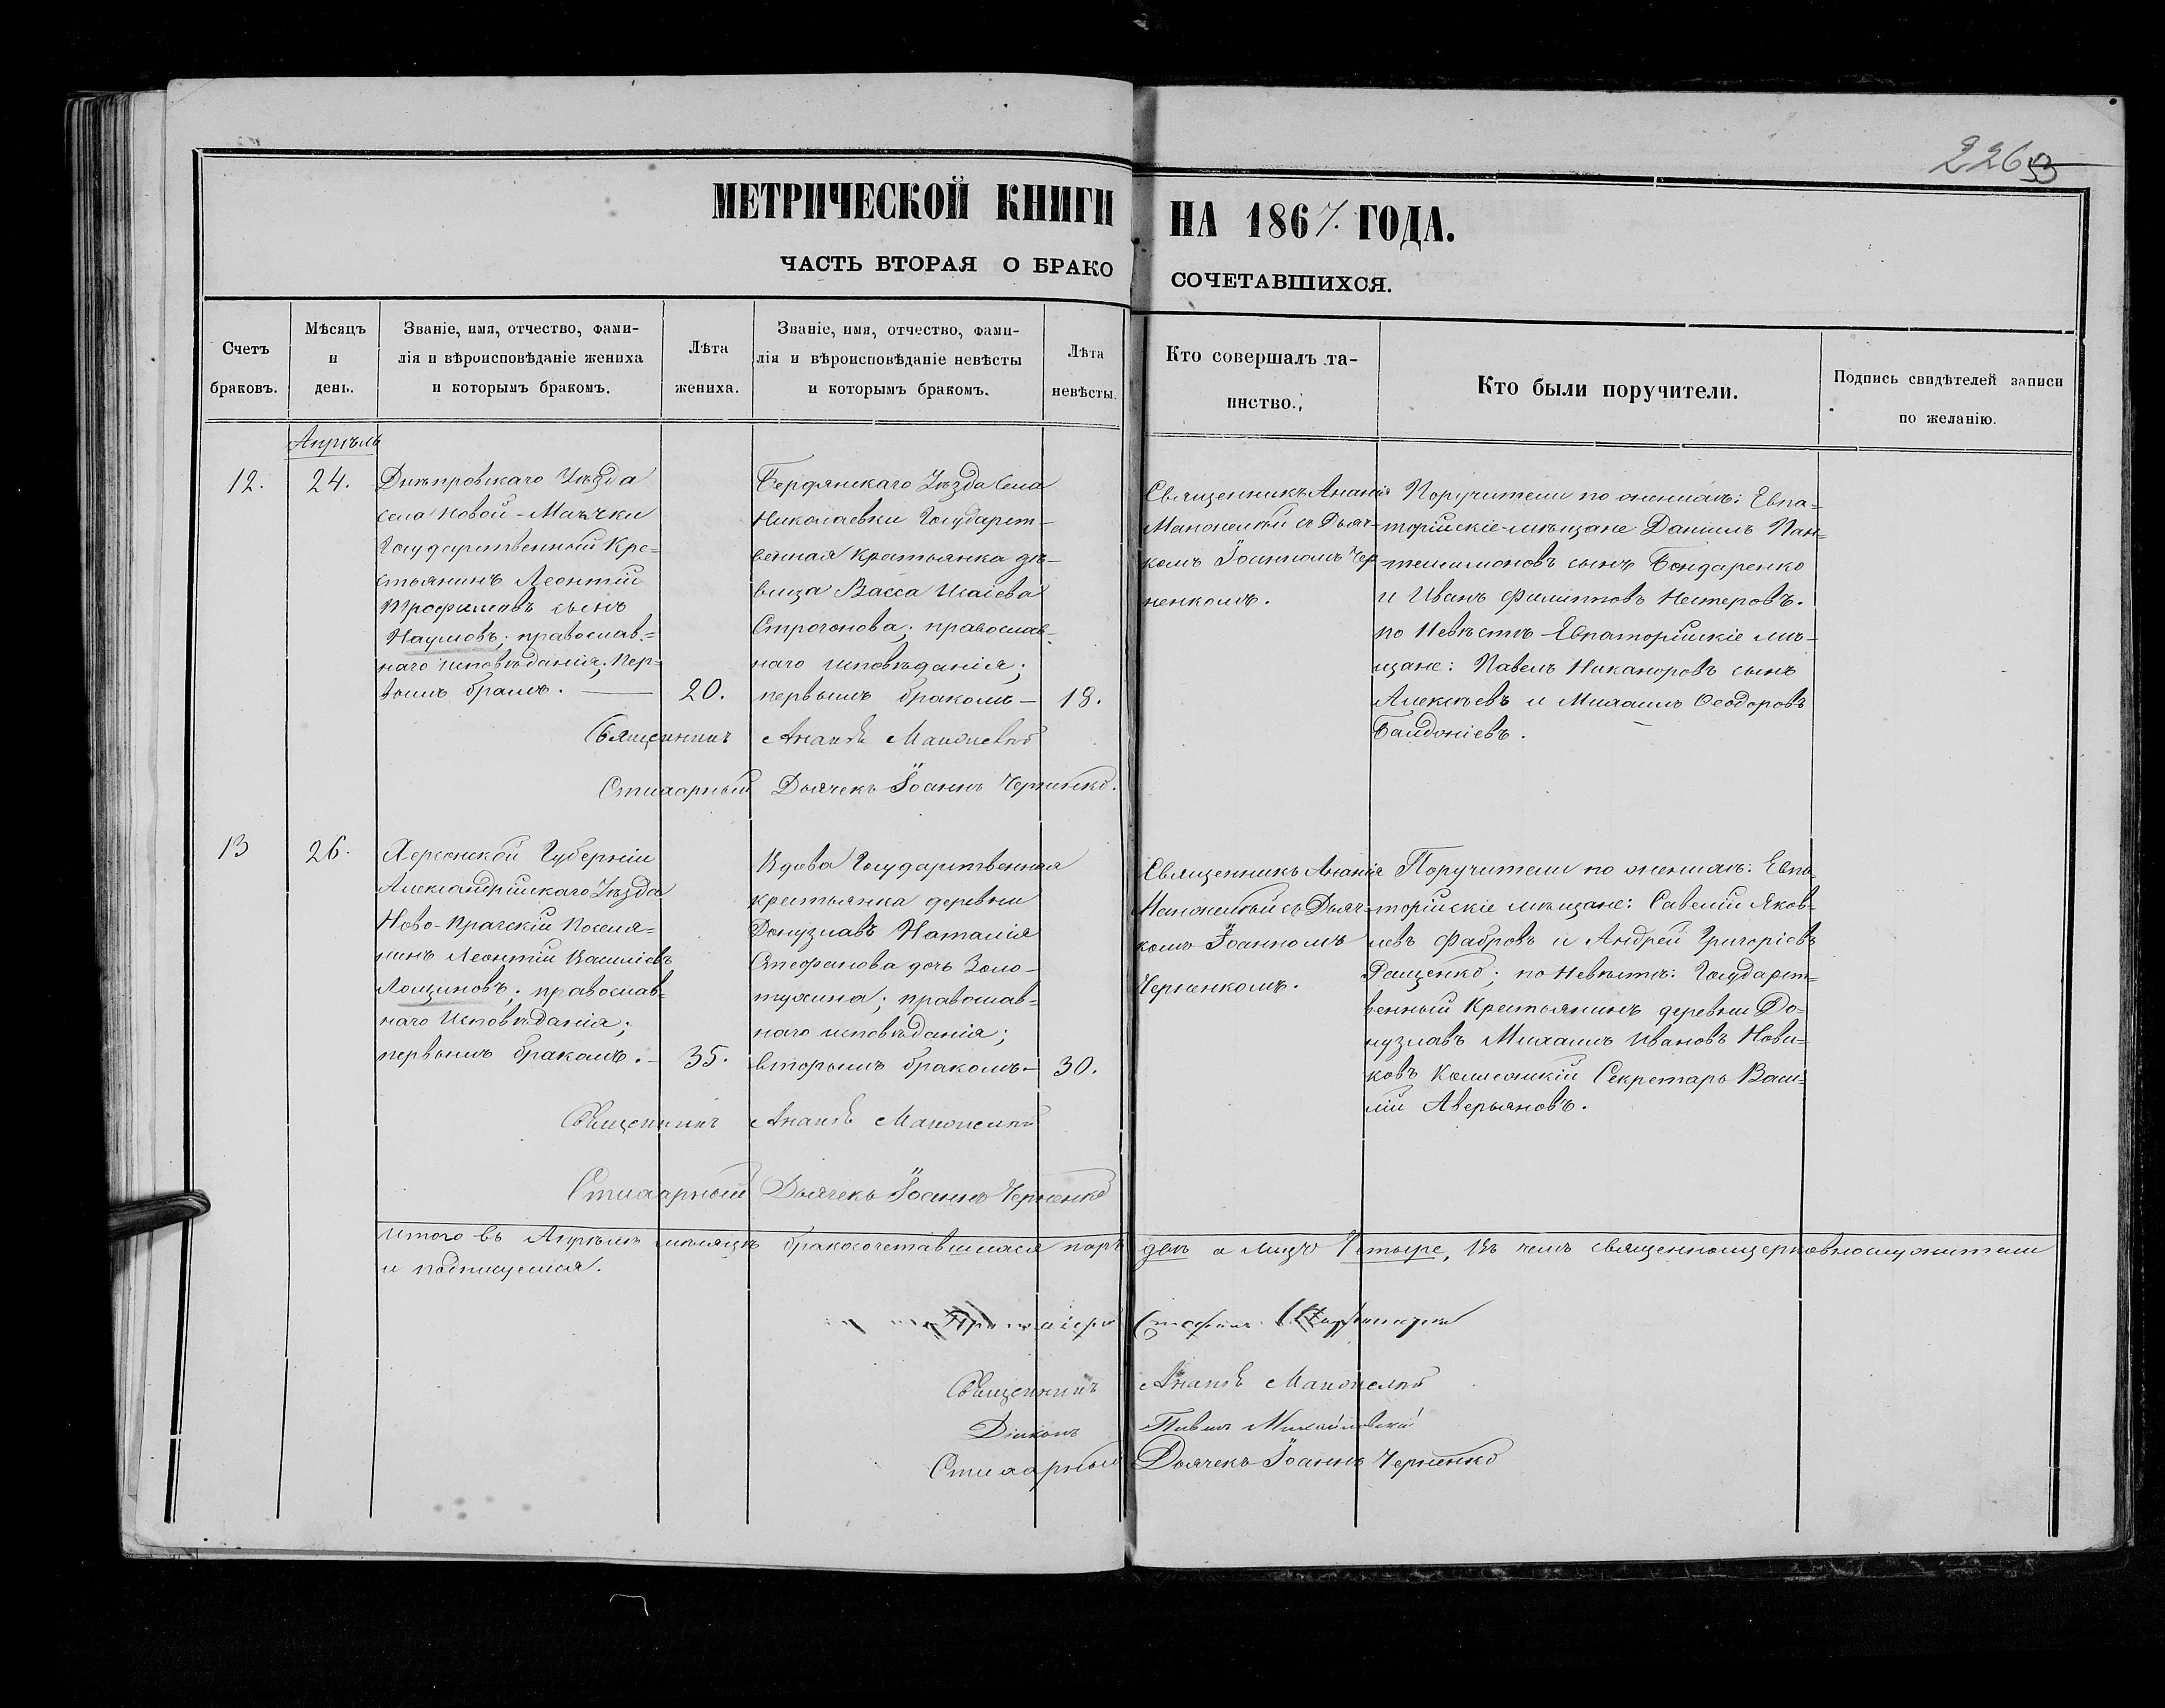 226
МЕТРИЧЕСКОЙ КНИГИ НА 1867. ГОДА.
ЧАСТЬ ВТОРАЯ О БРАКОСОЧЕТАВШИХСЯ.
Счетъ
браковъ.
Мѣсяцъ
и
день.
Званіе, имя, отчество, фами-
лія и вѣроисповѣданіе жениха
и которымъ бракомъ.
Лѣта
жениха.
Званіе, имя, отчество, фами-
лія и вѣроисповѣданіе невѣсты
и которымъ бракомъ.
Лѣта
невѣсты.
Кто совершалъ та-
инство.
Кто были поручители.
Подпись свидѣтелей записи
по желанію.
Апрѣль
12.
24.
Днѣпровскаго Уѣзда
села Новой-Маячки
Государственный Кре=
стьянинъ Леонтій
Трофимовъ сынъ
Наумовъ; православ=
наго исповѣданія; пер=
вымъ бракомъ.
20.
Бердянскаго Уѣзда Села
Николаевки Государст-
венная Крестьянка дѣ-
вица Васса Исаіева
Строгонова; православ-
наго исповѣданія;
первымъ бракомъ—
18.
Священникъ Ананія
съ Дьяч-
комъ Іоанномъ Чер-
ненкомъ.
Поручители по женихѣ: Евпа=
торійскіе мѣщане Даніилъ Пан=
телимоновъ сынъ Бондаренко
и Иванъ Филипповъ Нестеровъ.
по Невѣстѣ Евпаторійскіе мѣ-
щане: Павелъ Никаноровъ сынъ
Алексѣевъ и Михаилъ Ѳеодоровъ
Священникъ Ананія
Стихарный Дьячекъ Іоаннъ Черненко.
13
26.
Херсонской Губерніи
Александрійскаго Уѣзда
Ново-Прагскій Поселя=
нинъ Леонтій Василіевъ
Лощиновъ; православ=
наго Исповѣданія;
первымъ бракомъ.
35.
Вдова Государственная
крестьянка деревни
Донузлавъ Наталія
Стефанова дочь Золо-
тухина; православ=
наго исповѣданія;
вторымъ бракомъ
30.
Священникъ Ананія
съ Дьяч-
комъ Іоанномъ
Черненкомъ.
Поручители по женихѣ: Евпа
торійскіе мѣщане: Савелій Яков-
левъ Фабровъ и Андрей Григоріевъ
по Невѣстѣ: Государст=
венный Крестьянинъ деревни До=
нузлавъ Михаилъ Ивановъ Нови=
ковъ Коллежскій Секретарь Васи=
лій Аверьяновъ.
Священникъ Ананія
Стихарный Дьячекъ Іоаннъ Черненко
Итого въ Апрѣлѣ мѣсяцѣ бракосочетавшихся паръ двѣ а лицъ Четыре, Въ чемъ священноцерковнослужители
и подписуемся.
Священникъ Ананія
Діаконъ Павелъ Михайловскій
Стихарный Дьячекъ Іоаннъ Черненко